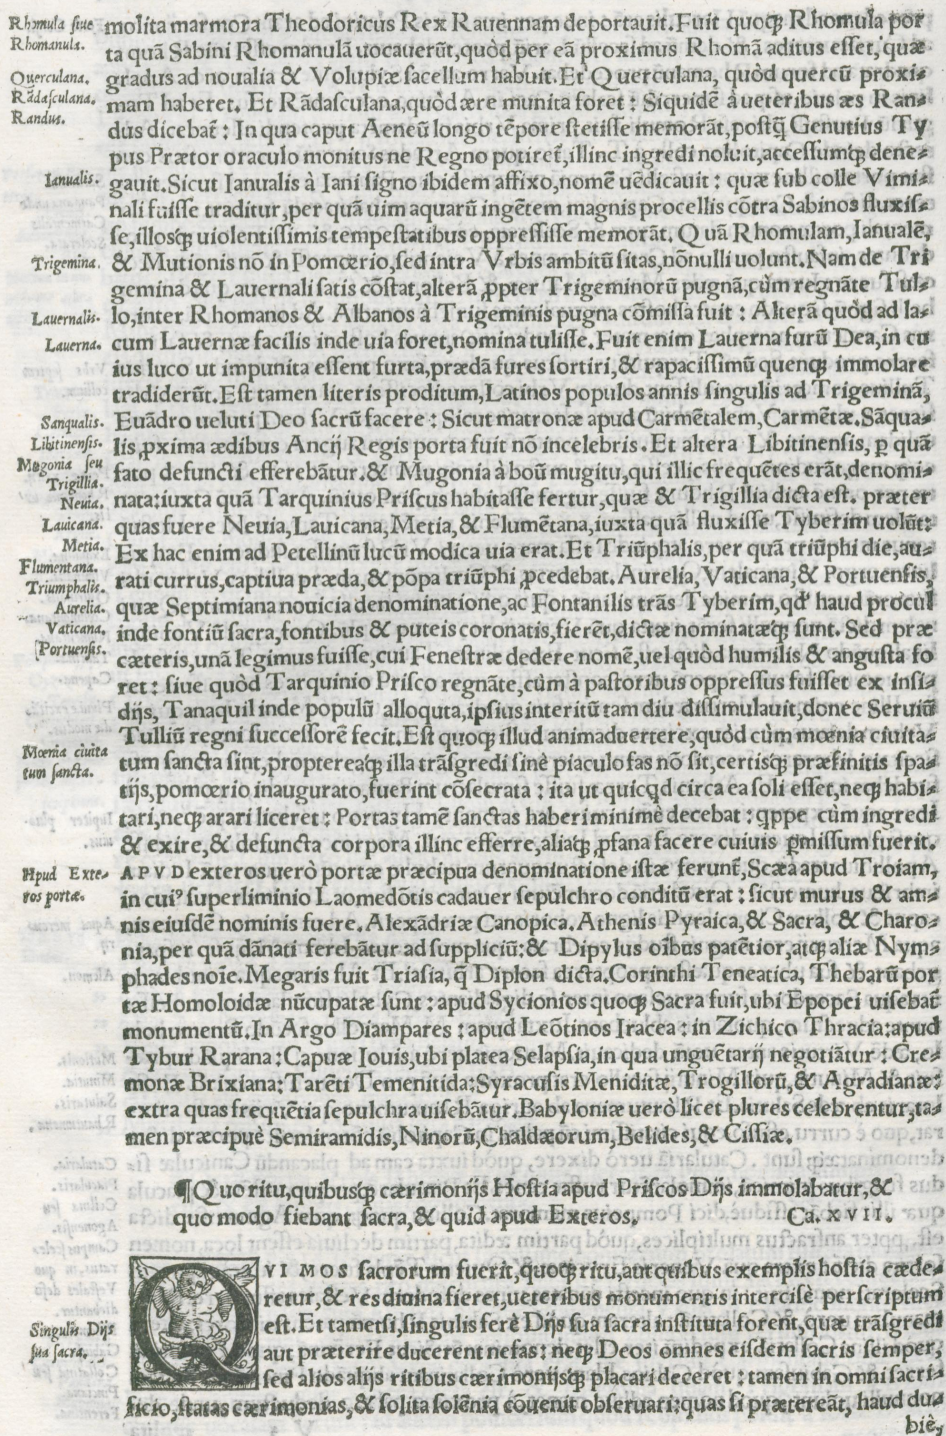 Rhomula siue
Rhomanula.
molita marmora Theodoricus Rex Rauennam deportauit. Fuit quoqꝫ Rhomula por
ta quã Sabini Rhomanulã uocauerũt, quòd per eã proximus Rhomã aditus esset, quæ
Querculana.
gradus ad noualia & Volupiæ sacellum habuit. Et Querculana, quòd quercũ proxi-
Rãdasculana.
mam haberet. Et Rãdasculana, quòd ære munita foret : Siquidẽ à ueteribus æs Ran-
Randus.
dus dicebat̃ : In qua caput Aeneũ longo tẽpore stetisse memorãt, postq̃ Genutius Ty
pus Prætor oraculo monitus ne Regno potiret̃, illinc ingredi noluit, accessumqꝫ dene-
Ianualis.
gauit. Sicut Ianualis à Iani signo ibidem affixo, nomẽ uẽdicauit : quæ sub colle Vimi-
nali fuisse traditur, per quã uim aquarũ ingẽtem magnis procellis cõtra Sabinos fluxis-
se, illosqꝫ uiolentissimis tempestatibus oppressisse memorãt. Quã Rhomulam, Ianualẽ,
Trigemina.
& Mutionis nõ in Pomœrio, sed intra Vrbis ambitũ sitas, nõnulli uolunt. Nam de Tri
gemina & Lauernali satis cõstat, alterã ꝓpter Trigeminorũ pugnã, cùm regnãte Tul-
Lauernalis.
lo, inter Rhomanos & Albanos à Trigeminis pugna cõmissa fuit : Alterã quòd ad la-
Lauerna.
cum Lauernæ facilis inde uia foret, nomina tulisse. Fuit enim Lauerna furũ Dea, in cu
ius luco ut impunita essent furta, prædã fures sortiri, & rapacissimũ quenqꝫ immolare
tradiderũt. Est tamen literis proditum, Latinos populos annis singulis ad Trigeminã,
Sanqualis.
Euãdro ueluti Deo sacrũ facere : Sicut matronæ apud Carmẽtalem, Carmẽtæ. Sãqua-
Libitinensis.
lis, ꝓxima ædibus Ancij Regis porta fuit nõ incelebris. Et altera Libitinensis, ꝑ quã
Mugonia seu
Trigillia.
fato defuncti efferebãtur. & Mugonia à boũ mugitu, qui illic frequẽtes erãt, denomi-
Neuia.
nata : iuxta quã Tarquinius Priscus habitasse fertur, quæ & Trigillia dicta est. præter
Lauicana.
quas fuere Neuia, Lauicana, Metia, & Flumẽtana, iuxta quã fluxisse Tyberim uolũt:
Metia.
Ex hac enim ad Petellinũ lucũ modica uia erat. Et Triũphalis, per quã triũphi die, au-
Flumentana.
Triumphalis.
rati currus, captiua præda, & põpa triũphi ꝓcedebat. Aurelia, Vaticana, & Portuensis,
Aurelia.
quæ Septimiana nouicia denominatione, ac Fontanilis trãs Tyberim, qd' haud procul
Vaticana.
inde fontiũ sacra, fontibus & puteis coronatis, fierẽt, dictæ nominatæqꝫ sunt. Sed præ
Portuensis.
cæteris, unã legimus fuisse, cui Fenestræ dedere nomẽ, uel quòd humilis & angusta fo
ret : siue quòd Tarquinio Prisco regnãte, cùm à pastoribus oppressus fuisset ex insi-
dijs, Tanaquil inde populũ alloquta, ipsius interitũ tam diu dissimulauit, donec Seruiũ
Tulliũ regni successorẽ fecit. Est quoqꝫ illud animaduertere, quòd cùm mœnia ciuita-
Mœnia ciuita
tum sancta.
tum sancta sint, proptereaqꝫ illa trãsgredi sinè piaculo fas nõ sit, certisqꝫ præfinitis spa-
tijs, pomœrio inaugurato, fuerint cõsecrata : ita ut quicqd circa ea soli esset, neqꝫ habi-
tari, neqꝫ arari liceret : Portas tamẽ sanctas haberi minimè decebat : qppe cùm ingredi
& exire, & defuncta corpora illinc efferre, aliaqꝫ ꝓfana facere cuiuis ꝑmissum fuerit.
Apud Exte-
ros portæ.
APVD exteros uerò portæ præcipua denominatione istæ ferunt̃, Scæa apud Troiam,
in cui⁹ superliminio Laomedõtis cadauer sepulchro conditũ erat : sicut murus & am-
nis eiusdẽ nominis fuere. Alexãdriæ Canopica. Athenis Pyraica, & Sacra, & Charo-
nia, per quã dãnati ferebãtur ad suppliciũ: & Dipylus oĩbus patẽtior, atqꝫ aliæ Nym-
phades noĩe. Megaris fuit Triasia, q̃ Diplon dicta. Corinthi Teneatica, Thebarũ por
tæ Homoloidæ nũcupatæ sunt : apud Sycionios quoqꝫ Sacra fuit, ubi Epopei uisebat̃
monumentũ. In Argo Diampares : apud Leõtinos Iracea : in Zichico Thracia: apud
Tybur Rarana : Capuæ Iouis, ubi platea Selapsia, in qua unguẽtarij negotiãtur : Cre-
monæ Brixiana: Tarẽti Temenitida: Syracusis Meniditæ, Trogillorũ, & Agradianæ:
extra quas frequẽtia sepulchra uisebãtur. Babyloniæ uerò licet plures celebrentur, ta-
men præcipuè Semiramidis, Ninorũ, Chaldæorum, Belides, & Cissiæ.
¶Quo ritu, quibusqꝫ cærimonijs Hostia apud Priscos Dijs immolabatur, &
quo modo fiebant sacra, & quid apud Exteros. Ca. XVII.
QVI MOS sacrorum fuerit, quoqꝫ ritu, aut quibus exemplis hostia cæde-
retur, & res diuina fieret, ueteribus monumentis intercisè perscriptum
Singulis Dijs
sua sacra.
est. Et tametsi, singulis ferè Dijs sua sacra instituta forent, quæ trãsgredi
aut præterire ducerent nefas : neqꝫ Deos omnes eisdem sacris semper,
sed alios alijs ritibus cærimonijsqꝫ placari deceret : tamen in omni sacri-
ficio, statas cærimonias, & solita solẽnia cõuenit obseruari: quas si prætereãt, haud du-
biè,